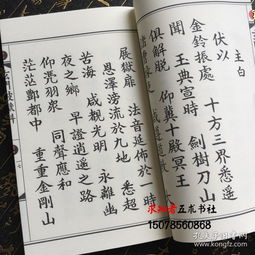 主白
伏以
金鈴振處 十方三界悉遙
聞 玉典宣時 劍樹刀山
俱解脫 仰冀十殿冥王
展獄扉 法音延佈於一時
恩澤滂流於九地 悉超
苦海 咸覩光明 永離幽
夜之鄉 早證逍遙之路
仰憑羽眾 同聲應和
茫茫酆都中 重重金剛山
15078560868